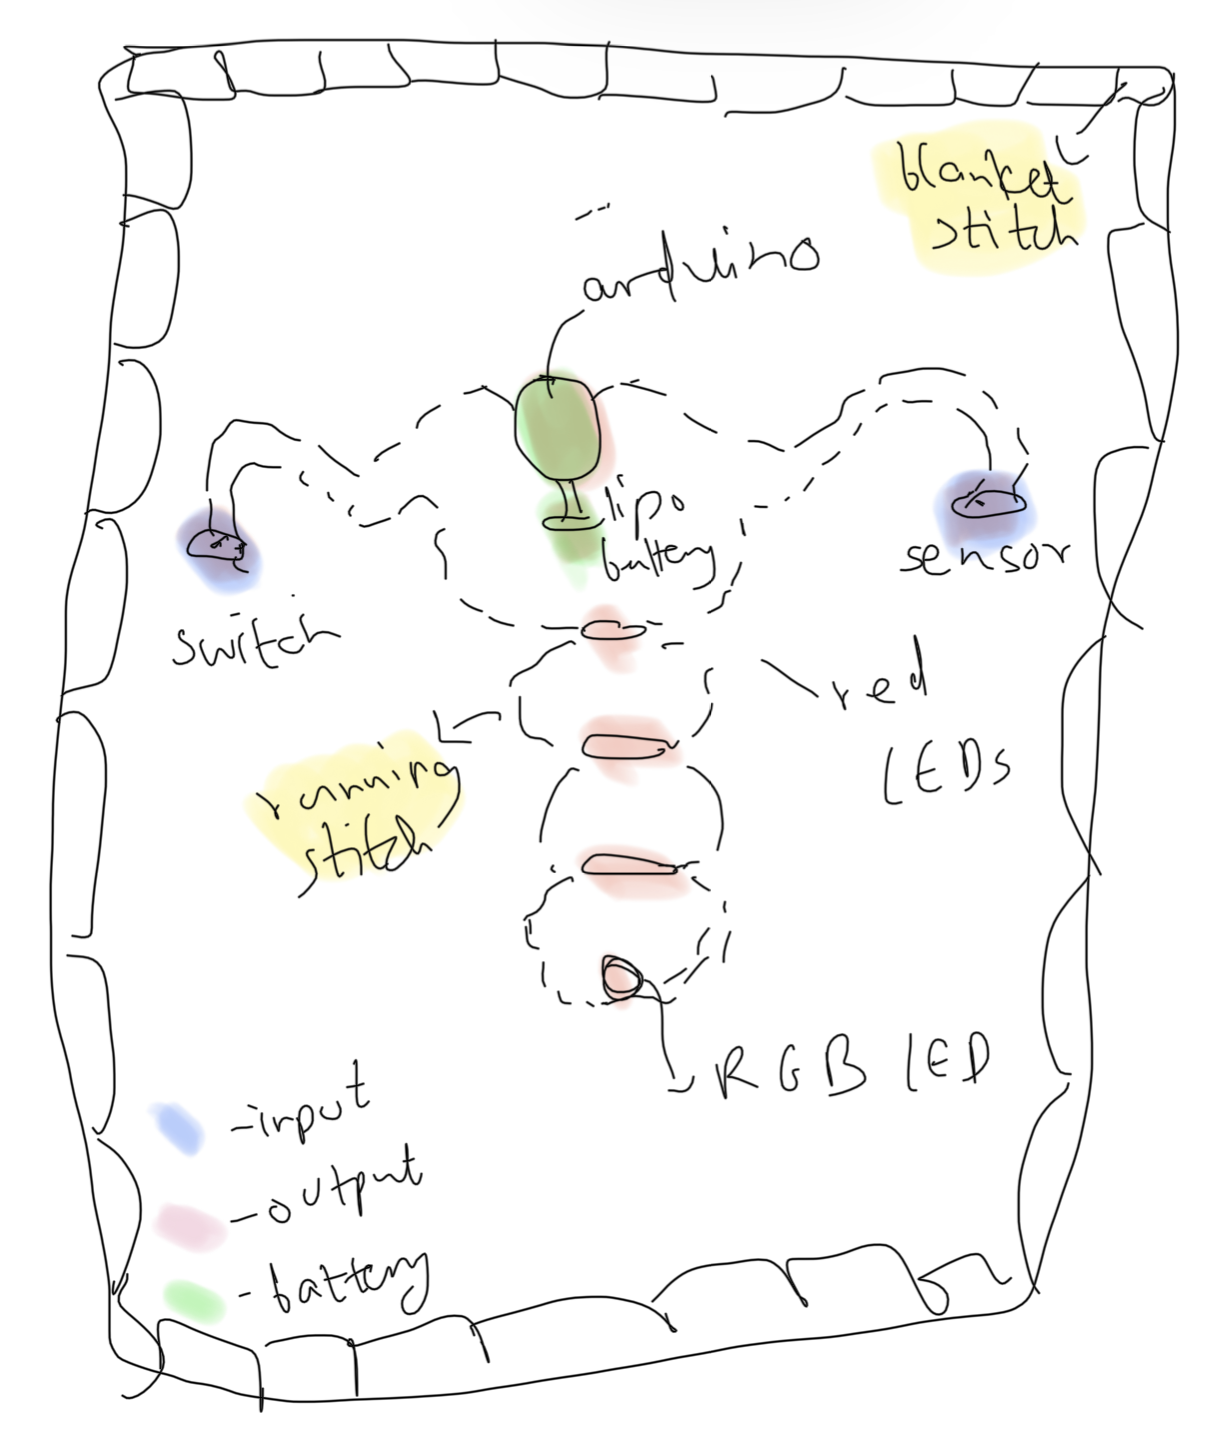 blanket
stitch
arduino
lipo
battery
sensor
switch
red
LEDs
running
stitch
RGB LED
-input
-output
-battery